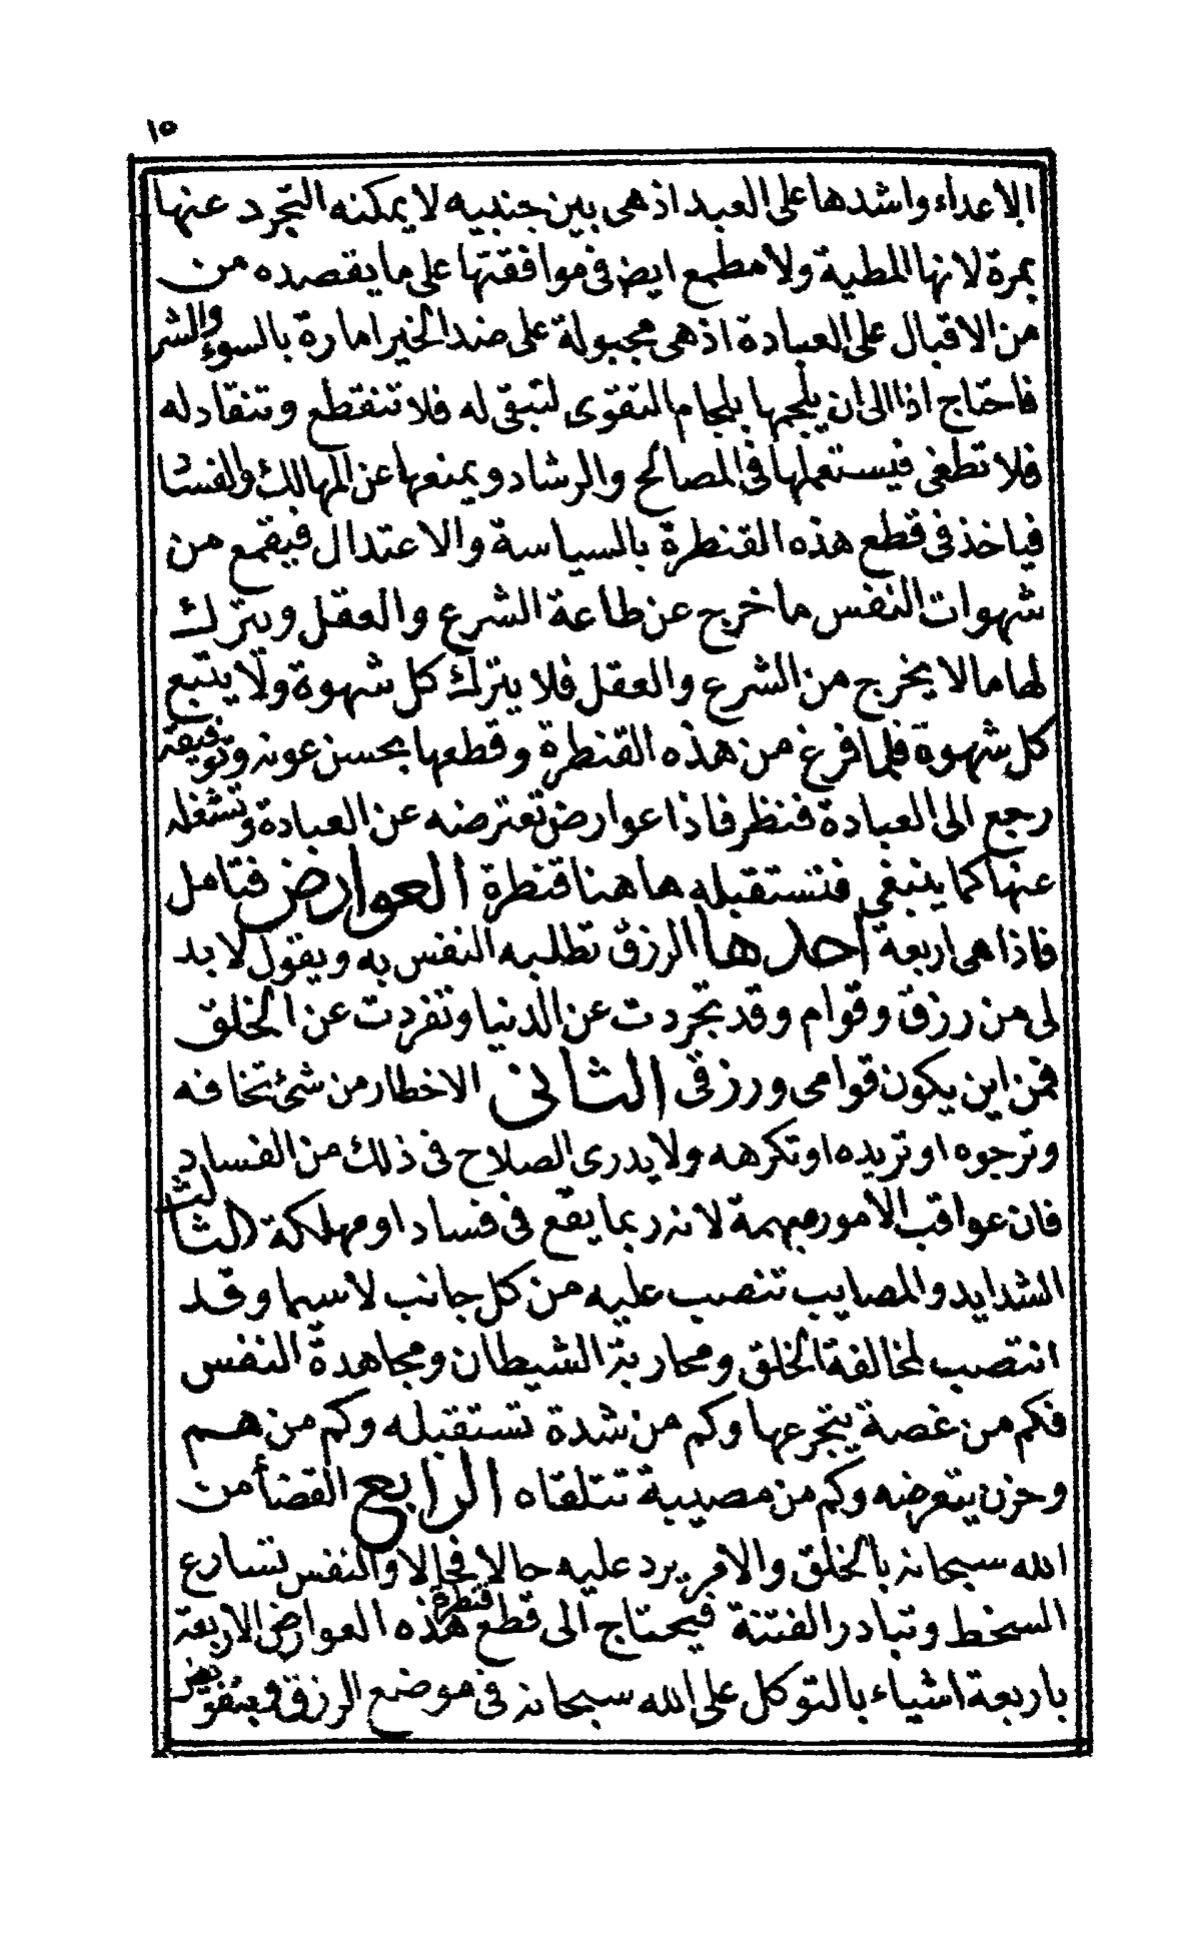 ١٥
الاعداء واشدها على العبد اذ هى بين جنبيه لا يمكنه التجرد عنها
بمرة لانها المطية ولا مطمع ايض فى موافقتها على ما يقصده من
من الاقبال على العبادة اذ هى مجبولة على ضد الخير امارة بالسوء والشر
فاحتاج اذا الى ان يلجمها بلجام التقوى لتبقى له فلا تنقطع وتنقاد له
فلا تطغى فيستعملها فى المصالح والرشاد ويمنعها عن المهالك والفساد
فياخذ فى قطع هذه القنطرة بالسياسة والاعتدال فيقمع من
شهوات النفس ما خرج عن طاعة الشرع والعقل ويترك
لها ما لا يخرج من الشرع والعقل فلا يترك كل شهوة ولا يتبع
كل شهوة فلما فرغ من هذه القنطرة وقطعها بحسن عونه وتوفيقه
رجع الى العبادة فنظر فاذا عوارض تعترضه عن العبادة وتشغله
عنها كما ينبغى فتستقبله هاهنا قنطرة العوارض فتامل
فاذا هى اربعة احدها الرزق تطلبه النفس به ويقول لا بد
لى من رزق وقوام وقد تجردت عن الدنيا وتفردت عن الخلق
فمن اين يكون قوامى ورزقى الثانى الاخطار من شئ تخافه
وترجوه او تريده او تكرهه ولا يدرى الصلاح فى ذلك من الفساد
فان عواقب الامور مبهمة لانه ربما يقع فى فساد او مهلكة الثالث
الشدايد والمصايب تنصب عليه من كل جانب لاسيما وقد
انتصب لمخالفة الخلق ومحاربة الشيطان ومجاهدة النفس
فكم من غصة يتجرعها وكم من شدة تستقبله وكم من هم
وحزن يتعرضه وكم من مصيبة تتلقاه الرابع القضأ من
الله سبحانه بالخلق والامر يرد عليه حالا فحالا والنفس تسارع
السخط وتبادر الفتنة فيحتاج الى قطع قنطرة هذه العوارض الاربعة
باربعة اشياء بالتوكل على الله سبحانه فى موضع الرزق وبتفويض